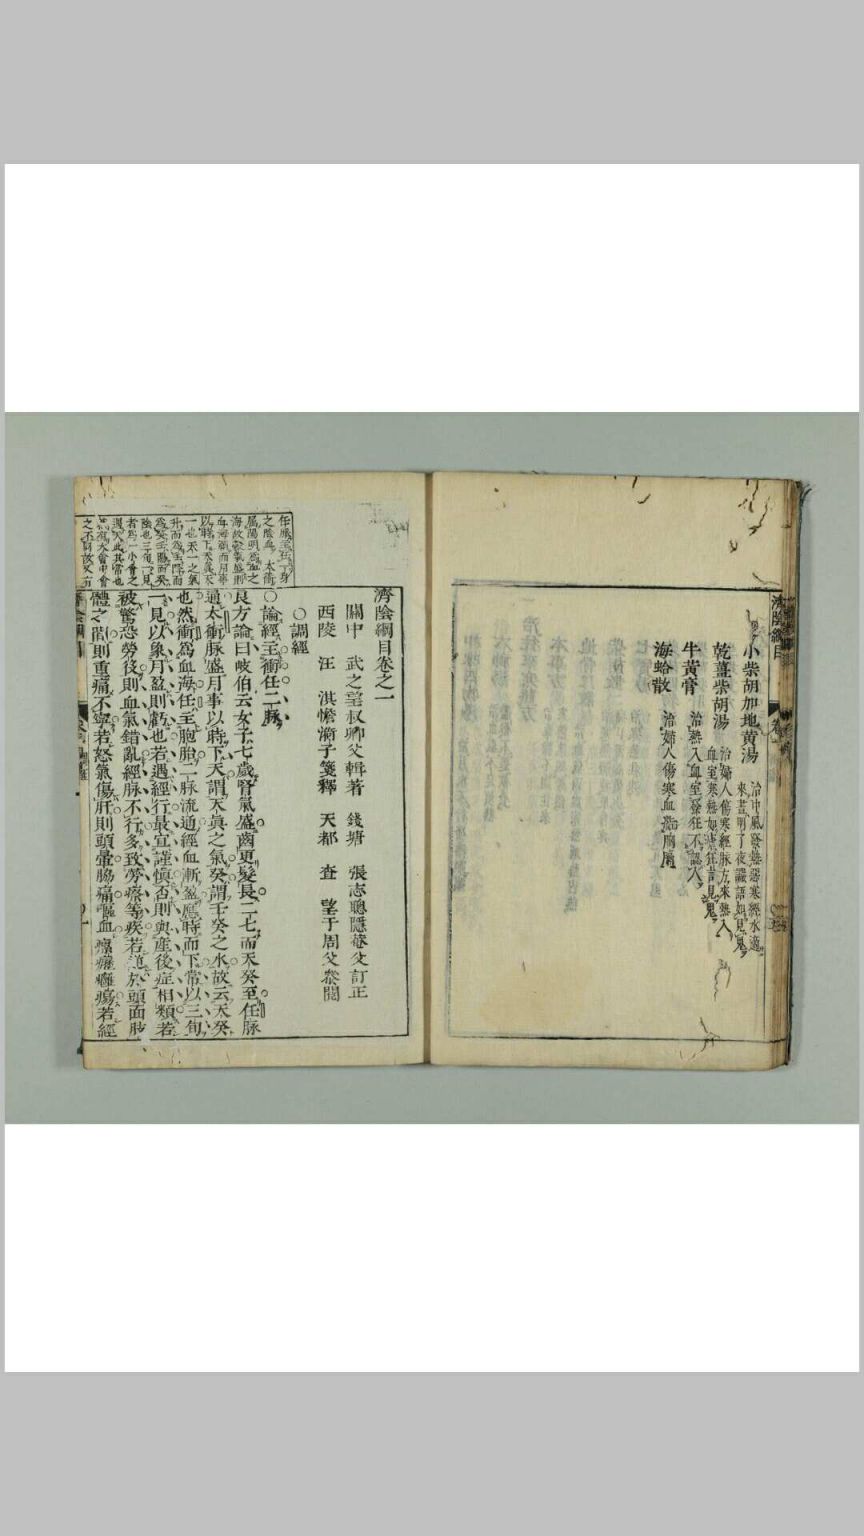 濟陰綱目
小柴胡加地黄湯
治中風發熱惡寒經水適
來晝明了夜譫語如見鬼
乾薑柴胡湯
治婦人傷寒經脉方來熱入
血室寒熱如瘧狂言見鬼
牛黄膏
治熱入血室發狂不認人
海蛤散
治婦人傷寒血結胸膈
濟陰綱目卷之一
關中 武之望叔卿父輯著 錢塘 張志聰隱菴父訂正
西陵 汪淇憺漪子箋釋 天都 查望于周父叅閱
○調經
○論經主衝任二脉
良方論曰岐伯云女子七歲腎氣盛齒更髮長二七而天癸至任脉
通太衝脉盛月事以時下天謂天真之氣癸謂壬癸之水故云天癸
也然衝爲血海任主胞胎二脉流通經血漸盈應時而下常以三旬
一見以象月盈則虧也若遇經行最宜謹慎否則與產後症相類若
被驚恐勞役則血氣錯亂經脉不行多致勞瘵等疾若逆於頭面肢
體之間則重痛不寧若怒氣傷肝則頭暈脇痛嘔血瘰癧癰瘍若經
任脉主任一身
之陰血太衝
屬陽明爲血之
海故穀氣盛則
血海滿而月事
以時下天真天
一也天一之氣
升而爲壬降而
爲癸壬陽而癸
陰也三旬一見
者爲一小會之